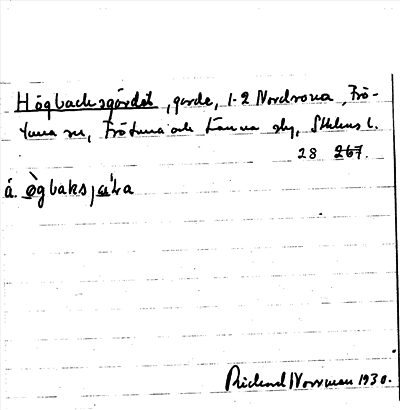 Högbacksgärdet, gärde, 1-2 Nordrona, Frö-
tuna sn, Frötuna och Länna skg, Sthlms l.
28 267.
å. ògbaks,
Richard Norrman 1930.